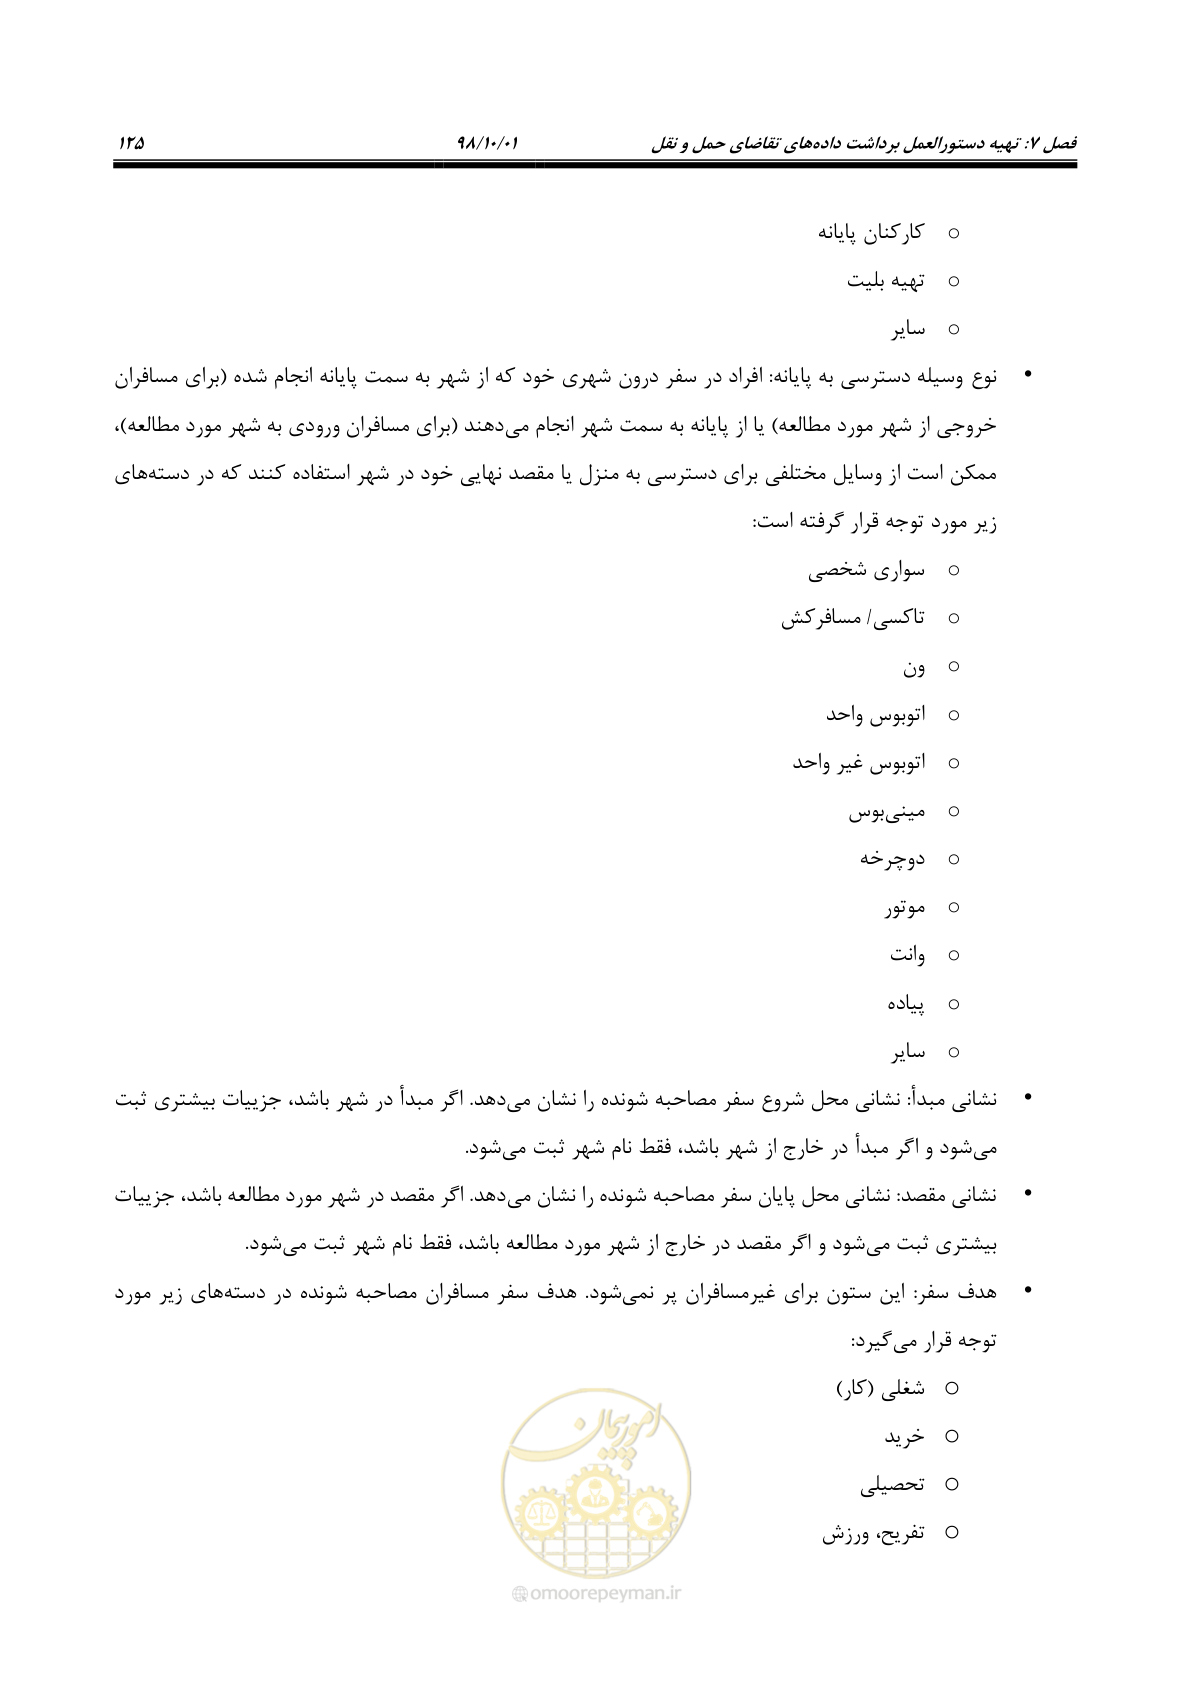 فصل ۷: تهیه دستورالعمل برداشت داده‌های تقاضای حمل و نقل ۹۸/۱۰/۰۱ ۱۲۵
○ کارکنان پایانه
○ تهیه بلیت
○ سایر
• نوع وسیله دسترسی به پایانه: افراد در سفر درون شهری خود که از شهر به سمت پایانه انجام شده (برای مسافران
خروجی از شهر مورد مطالعه) یا از پایانه به سمت شهر انجام می‌دهند (برای مسافران ورودی به شهر مورد مطالعه)،
ممکن است از وسایل مختلفی برای دسترسی به منزل یا مقصد نهایی خود در شهر استفاده کنند که در دسته‌های
زیر مورد توجه قرار گرفته است:
○ سواری شخصی
○ تاکسی/ مسافرکش
○ ون
○ اتوبوس واحد
○ اتوبوس غیر واحد
○ مینی‌بوس
○ دوچرخه
○ موتور
○ وانت
○ پیاده
○ سایر
• نشانی مبدأ: نشانی محل شروع سفر مصاحبه شونده را نشان می‌دهد. اگر مبدأ در شهر باشد، جزییات بیشتری ثبت
می‌شود و اگر مبدأ در خارج از شهر باشد، فقط نام شهر ثبت می‌شود.
• نشانی مقصد: نشانی محل پایان سفر مصاحبه شونده را نشان می‌دهد. اگر مقصد در شهر مورد مطالعه باشد، جزییات
بیشتری ثبت می‌شود و اگر مقصد در خارج از شهر مورد مطالعه باشد، فقط نام شهر ثبت می‌شود.
• هدف سفر: این ستون برای غیرمسافران پر نمی‌شود. هدف سفر مسافران مصاحبه شونده در دسته‌های زیر مورد
توجه قرار می‌گیرد:
○ شغلی (کار)
○ خرید
○ تحصیلی
○ تفریح، ورزش
امور پیمان
@omoorepeyman.ir